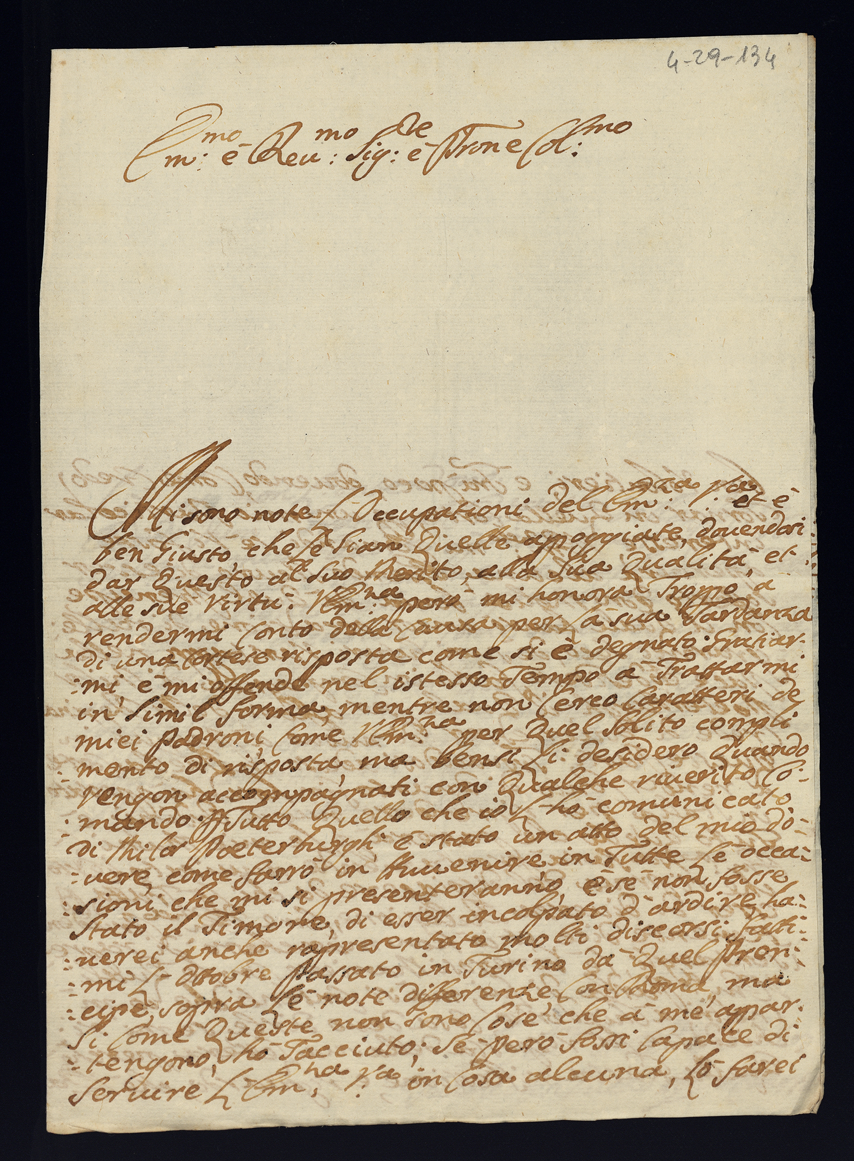 4-29-134
Em:mo è Reu:mo Sig:re è Prone Col:mo
Mi sono note L'Occupationi del Em:za V:ra et è
ben Giusto che le sian Quelle apoggiate, douendosi
dar Questo al suo Merito, alla sua Qualità, et
alle sue Virtù. V. Em:za però mi honora Troppo a
rendermi Conto della Causa per la sua Tardanza
di una Cortese risposta come si è degnato Gratiar-
:mi è mi offende nel istesso Tempo à Trattarmi
in Simil forma, mentre non Cerco Caratteri de
miei Padroni Come V. Em:za per Quel solito compli
mento di risposta ma bensi Li desidero Quando
vengon accompagnati con Qualche riuerito Co-
:mando. Tutto Quello che io L'hò comunicato
di Milor Poeterburgh è stato un atto del mio do-
:uere come farrò in Auuenire in Tutte Le occa-
:sioni che mi si presenteranno, è se non fosse
stato il Timore, di esser incolpato d'ardire, ha-
:uerei anche rapresentato molti discorsi fatti
mi L'Ottobre passato in Turino da Quel Pren-
:cipe, sopra Le note differenze Con Roma, ma
Si Come Queste non sono Cose che à me appar-
:tengono, hò Tacciuto; Se però fossi Capace di
Seruire L'Em:za V:ra in Cosa alcuna, Lo farei